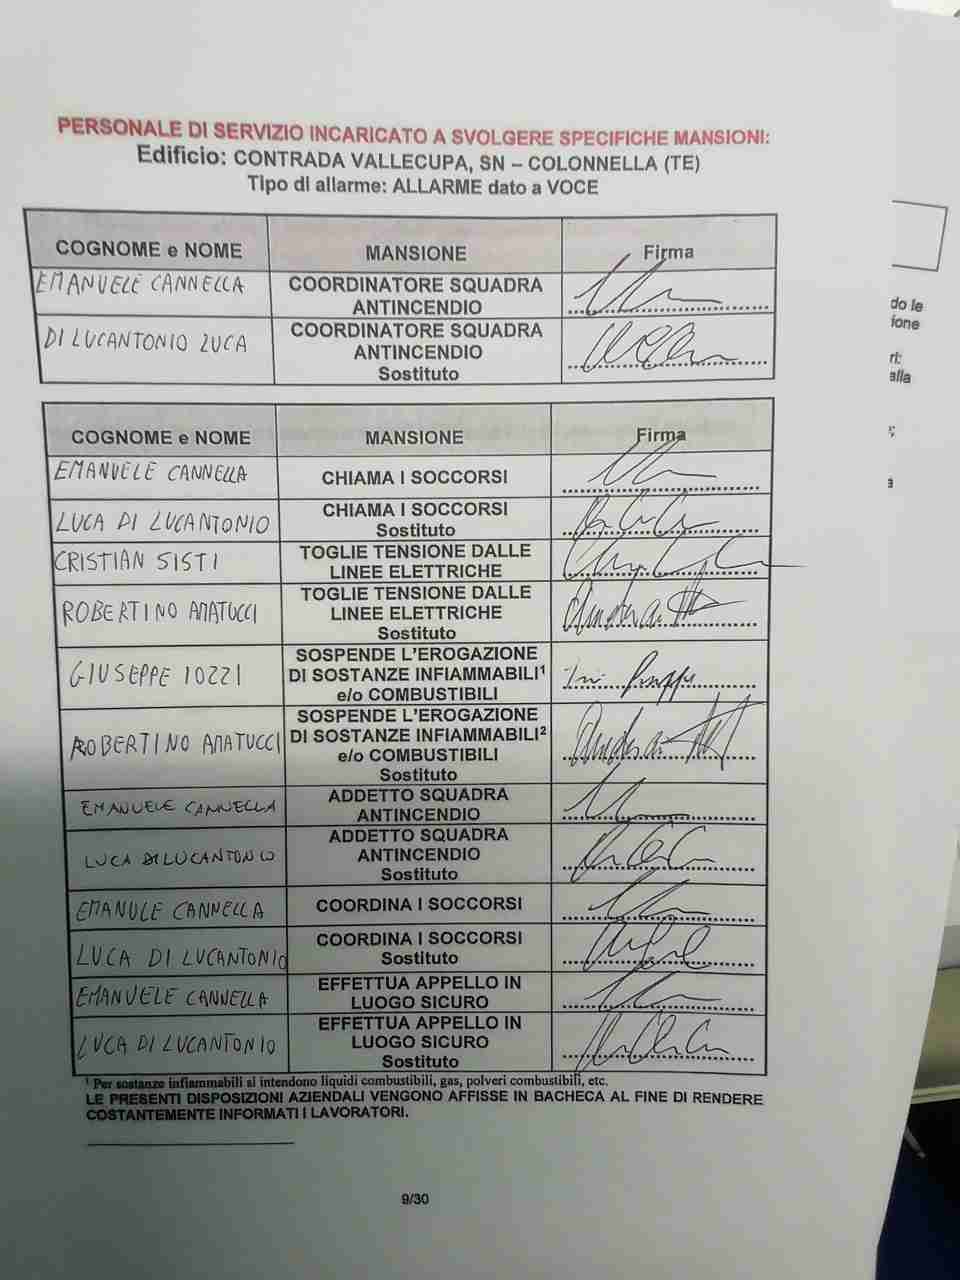 PERSONALE DI SERVIZIO INCARICATO A SVOLGERE SPECIFICHE MANSIONI:
Edificio: CONTRADA VALLECUPA, SN – COLONNELLA (TE)
Tipo di allarme: ALLARME dato a VOCE
COGNOME e NOME MANSIONE Firma
EMANUELE CANNELLA COORDINATORE SQUADRA
ANTINCENDIO
DI LUCANTONIO LUCA COORDINATORE SQUADRA
ANTINCENDIO
Sostituto
COGNOME e NOME MANSIONE Firma
EMANUELE CANNELLA CHIAMA I SOCCORSI
LUCA DI LUCANTONIO CHIAMA I SOCCORSI
Sostituto
CRISTIAN SISTI TOGLIE TENSIONE DALLE
LINEE ELETTRICHE
ROBERTINO AMATUCCI TOGLIE TENSIONE DALLE
LINEE ELETTRICHE
Sostituto
GIUSEPPE IOZZI SOSPENDE L'EROGAZIONE
DI SOSTANZE INFIAMMABILI¹
e/o COMBUSTIBILI
ROBERTINO AMATUCCI SOSPENDE L'EROGAZIONE
DI SOSTANZE INFIAMMABILI²
e/o COMBUSTIBILI
Sostituto
EMANUELE CANNELLA ADDETTO SQUADRA
ANTINCENDIO
LUCA DI LUCANTONIO ADDETTO SQUADRA
ANTINCENDIO
Sostituto
EMANULE CANNELLA COORDINA I SOCCORSI
LUCA DI LUCANTONIO COORDINA I SOCCORSI
Sostituto
EMANUELE CANNELLA EFFETTUA APPELLO IN
LUOGO SICURO
LUCA DI LUCANTONIO EFFETTUA APPELLO IN
LUOGO SICURO
Sostituto
¹ Per sostanze infiammabili si intendono liquidi combustibili, gas, polveri combustibili, etc.
LE PRESENTI DISPOSIZIONI AZIENDALI VENGONO AFFISSE IN BACHECA AL FINE DI RENDERE
COSTANTEMENTE INFORMATI I LAVORATORI.
9/30